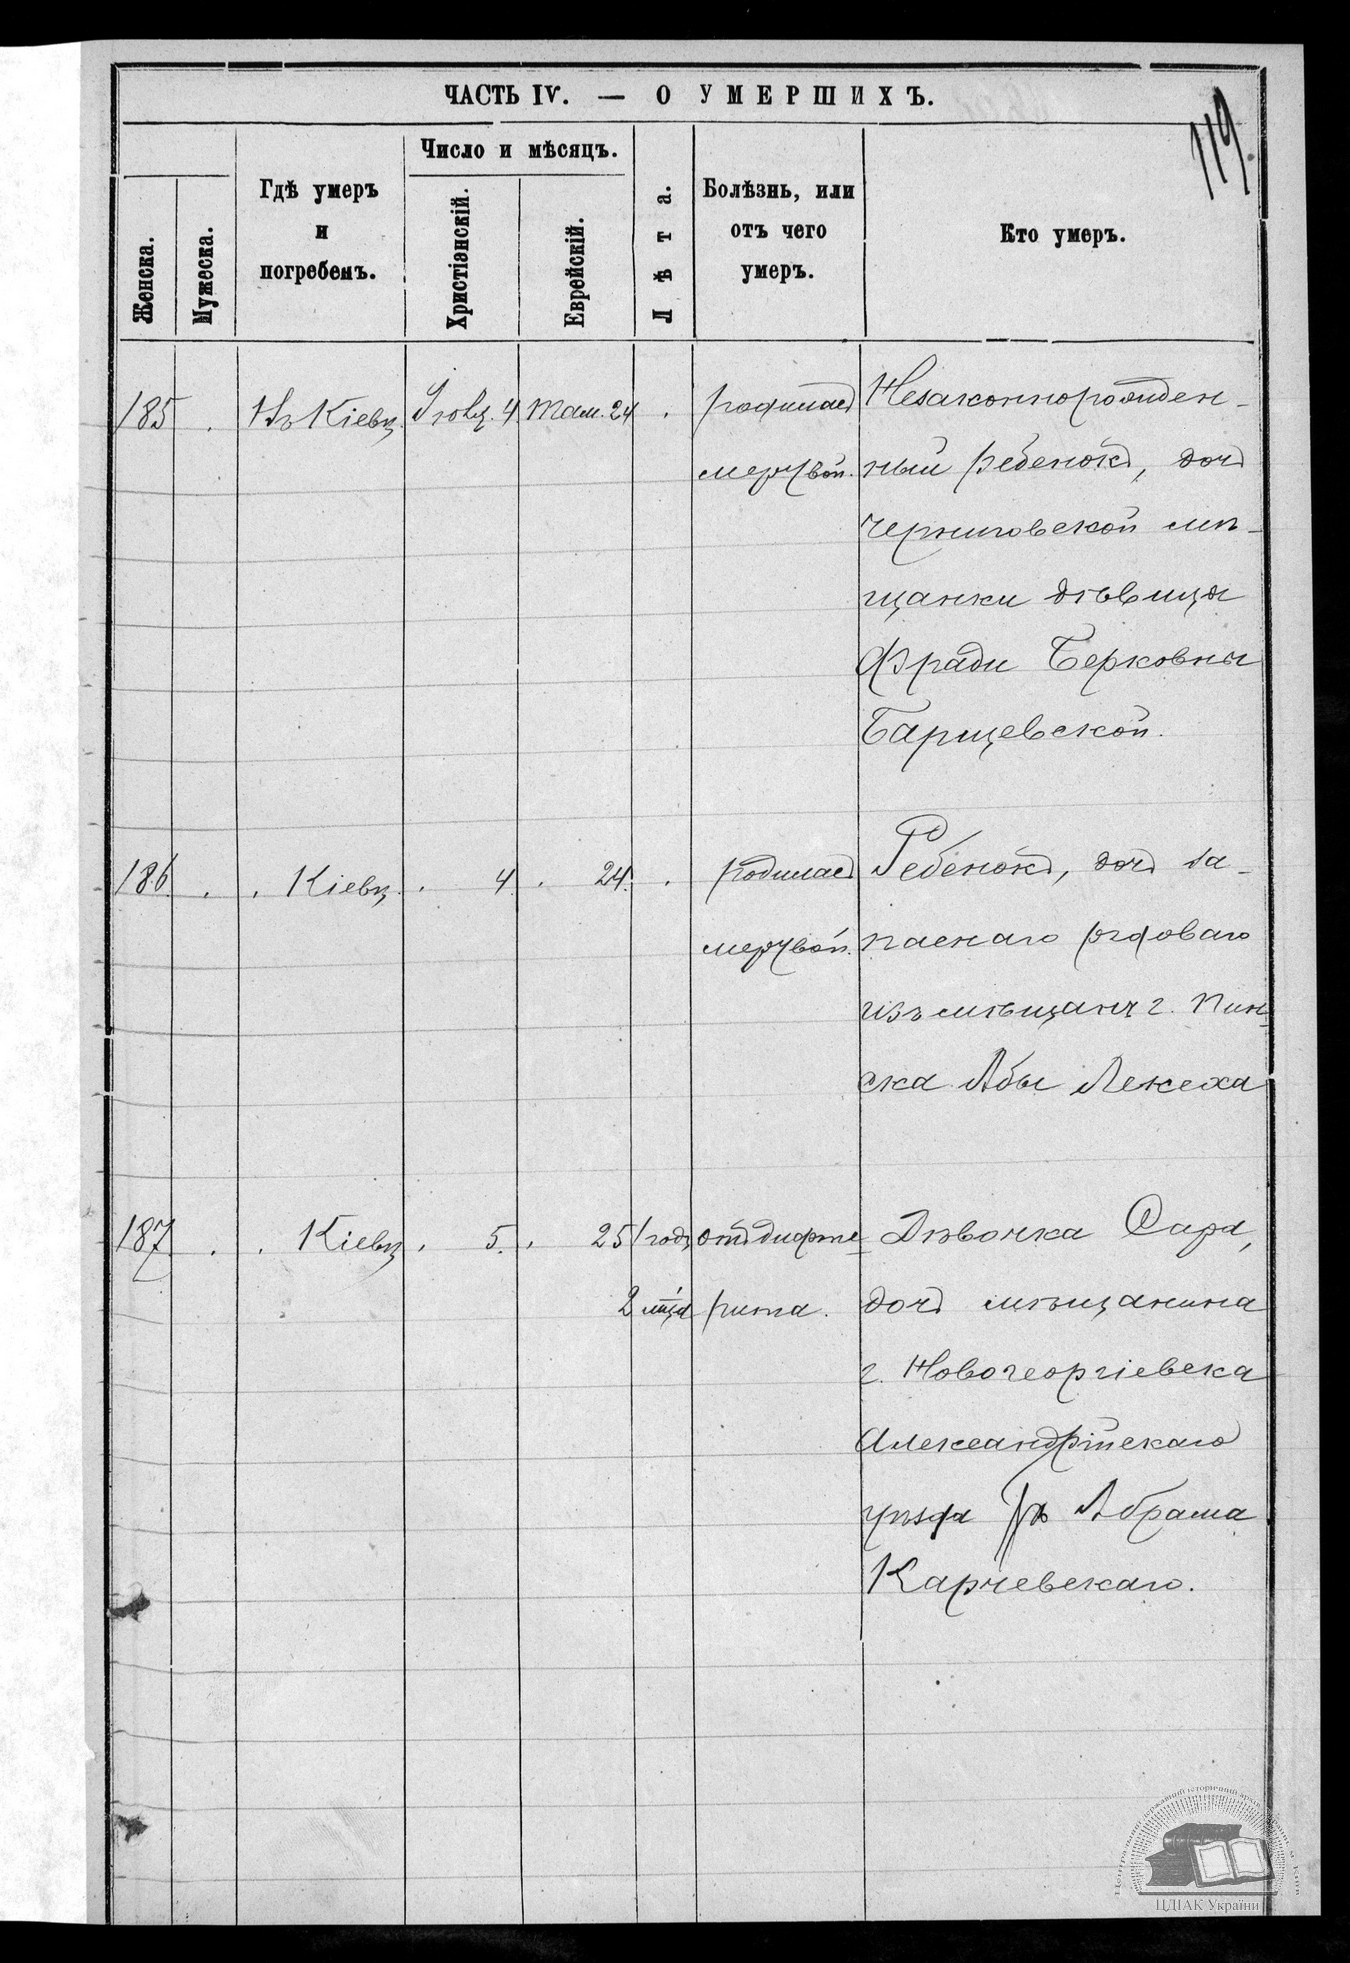 119.
ЧАСТЬ IV. — О УМЕРШИХЪ.
Женска.
Мужеска.
Гдѣ умеръ
и
погребенъ.
Число и мѣсяцъ.
Христіанскій.
Еврейскій.
Лѣта.
Болѣзнь, или
отъ чего
умеръ.
Кто умеръ.
185 . Въ Кіевѣ. Іюль. 4 Там. 24 . родилась Незаконнорожден-
мертвой. ный ребенокъ, дочь
черниговской мѣ-
щанки дѣвицы
Фради Берковны
Барщевской.
186 . . Кіевѣ . 4 . 24. . родилась Ребенокъ, дочь за-
мертвой. паснаго рядоваго
изъ мѣщанъ г. Пин-
ска Абы
187 . . Кіевѣ . 5. . 25 1 годъ отъ дифте- Дѣвочка Сара,
2 мѣсца рита. дочь мѣщанина
г. Новогеоргіевска
Александрійскаго
уѣзда Абрама
Карчевскаго.
ЦДІАК України